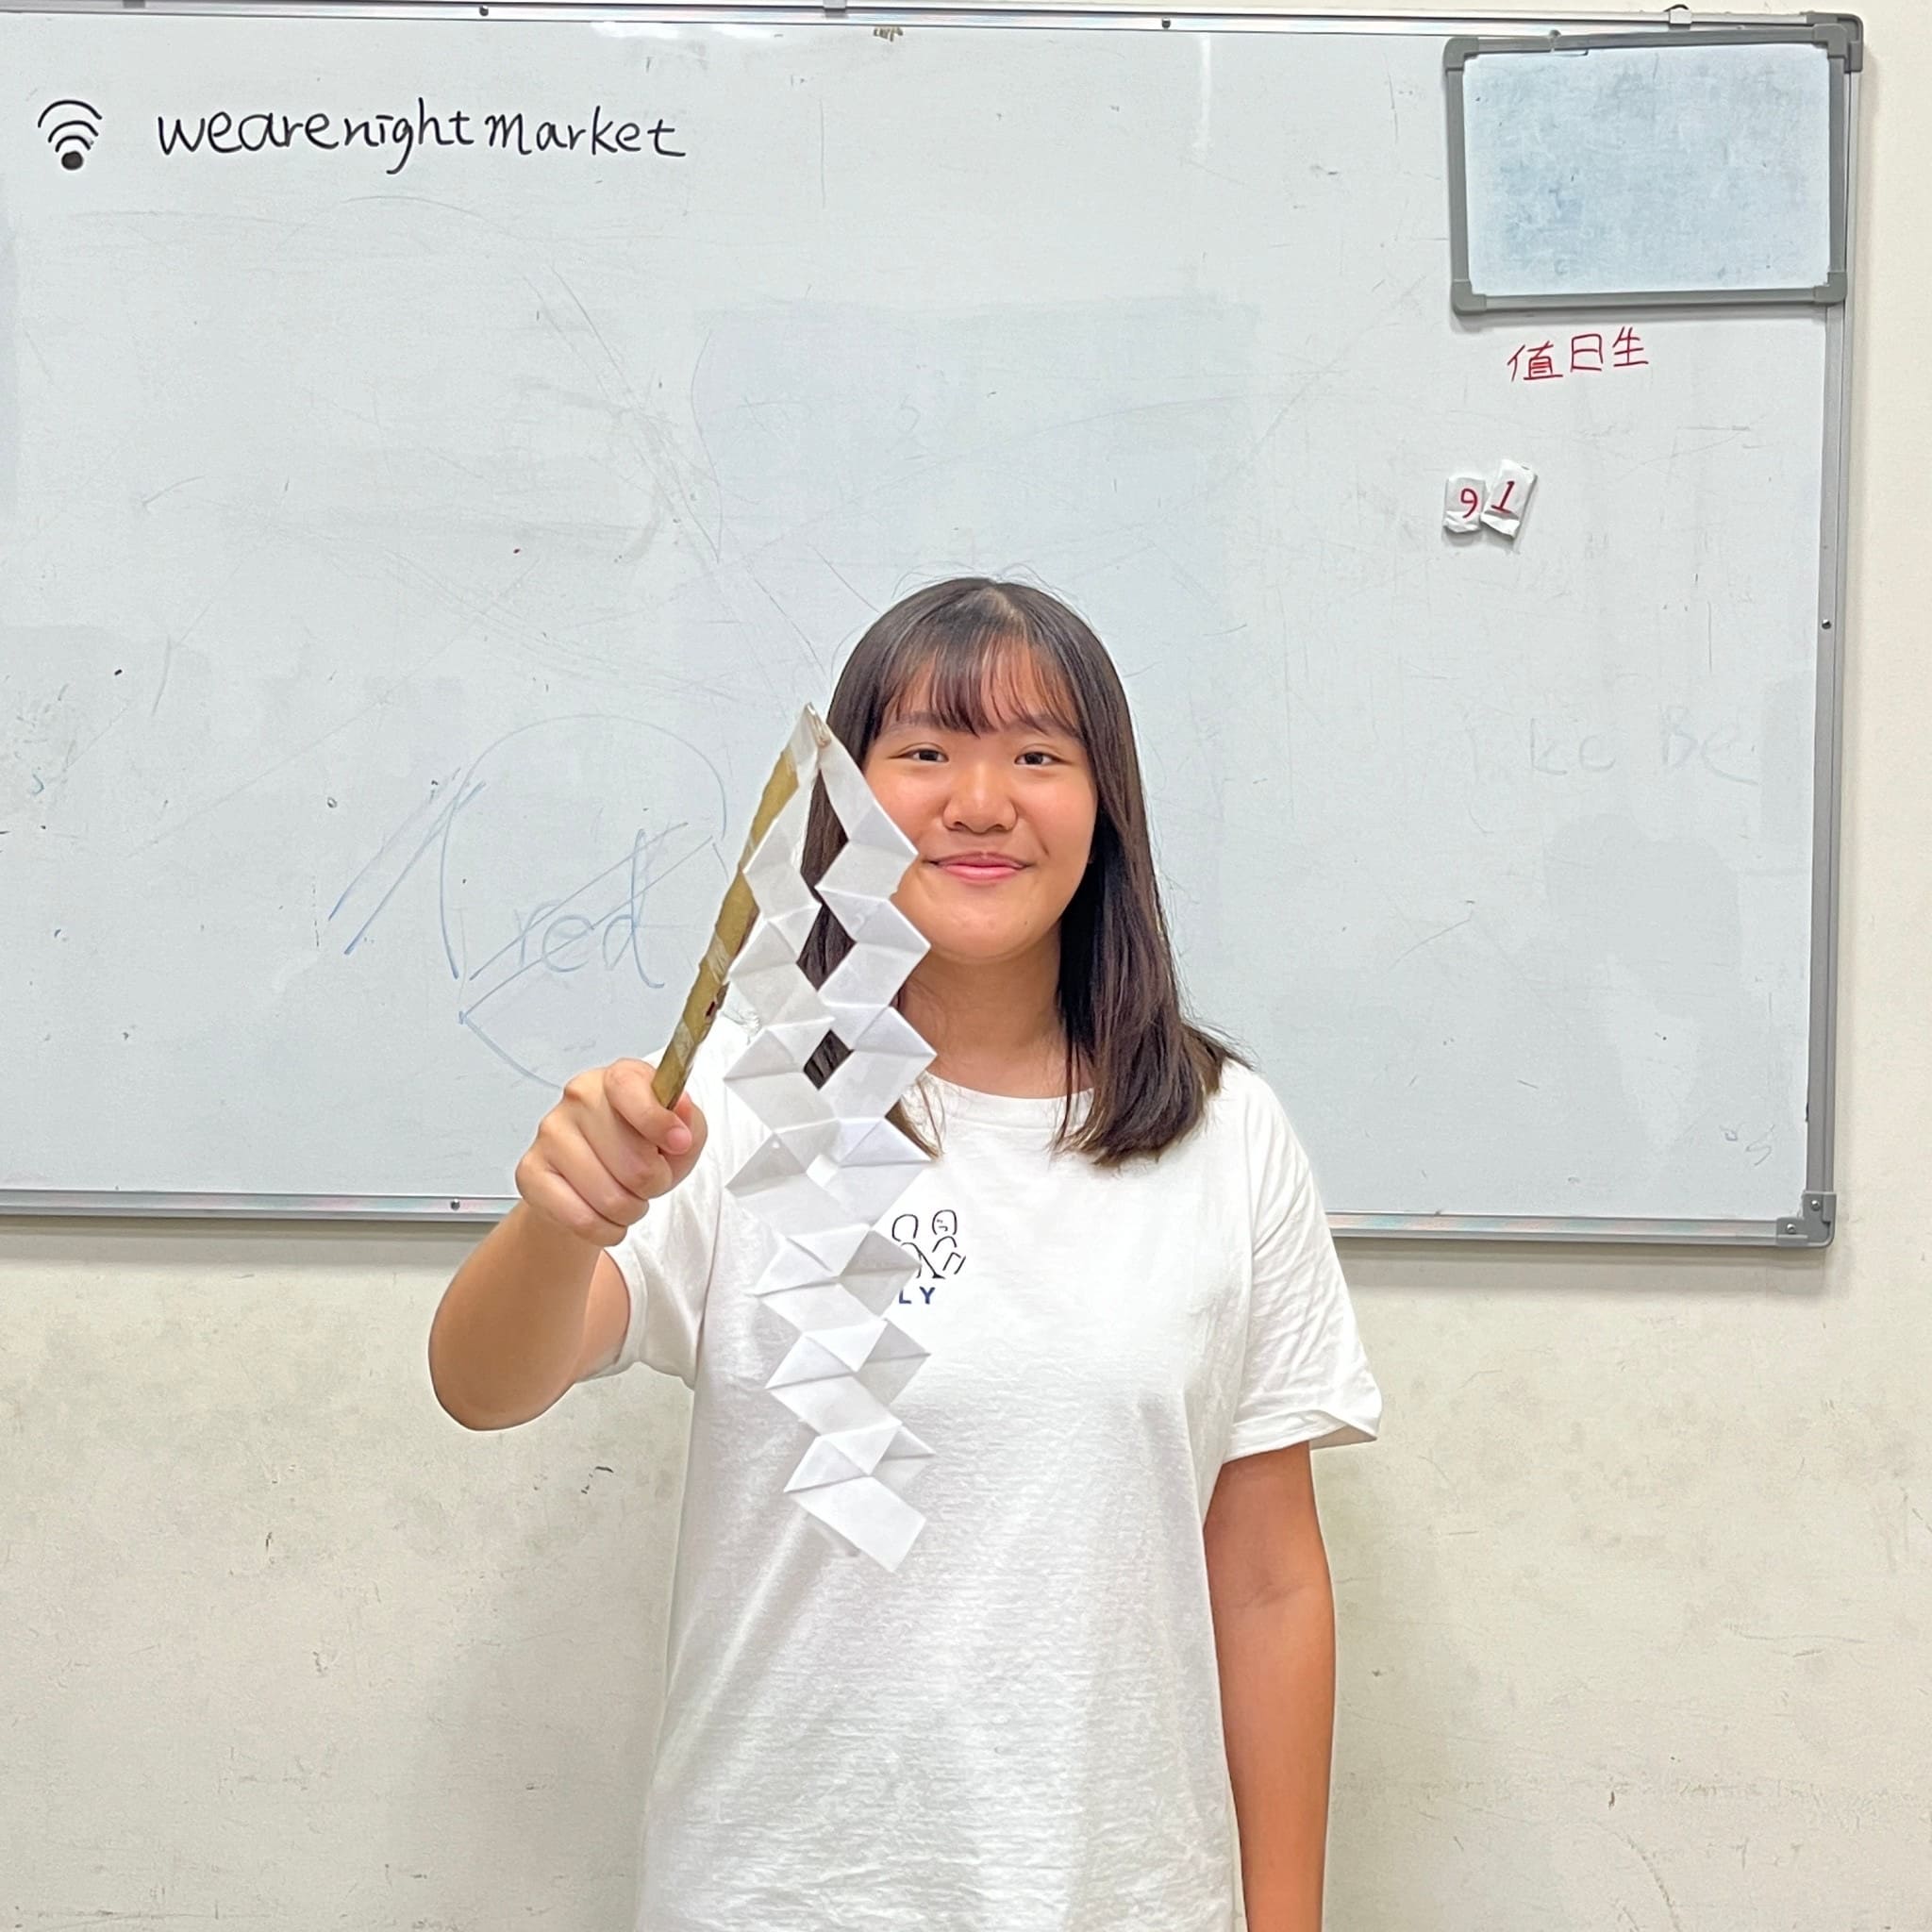 wearenightmarket
值日生
91
red
ke Be
LY